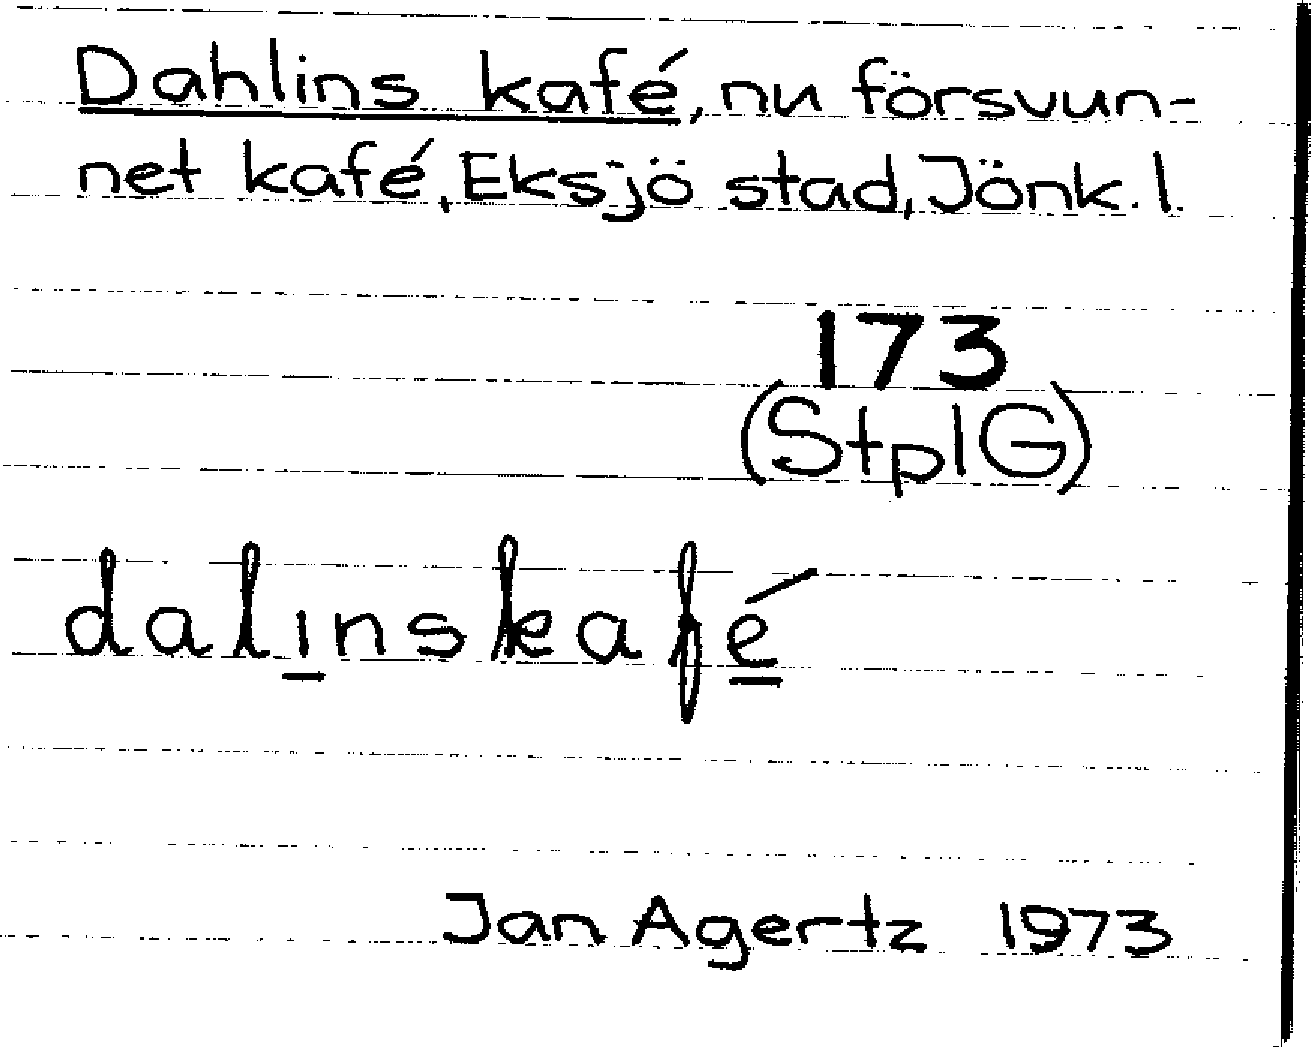 Dahlins kafé, nu försvun-
net kafé, Eksjö stad, Jönk. l.
173
(StplG)
dalinskafé
Jan Agertz 1973